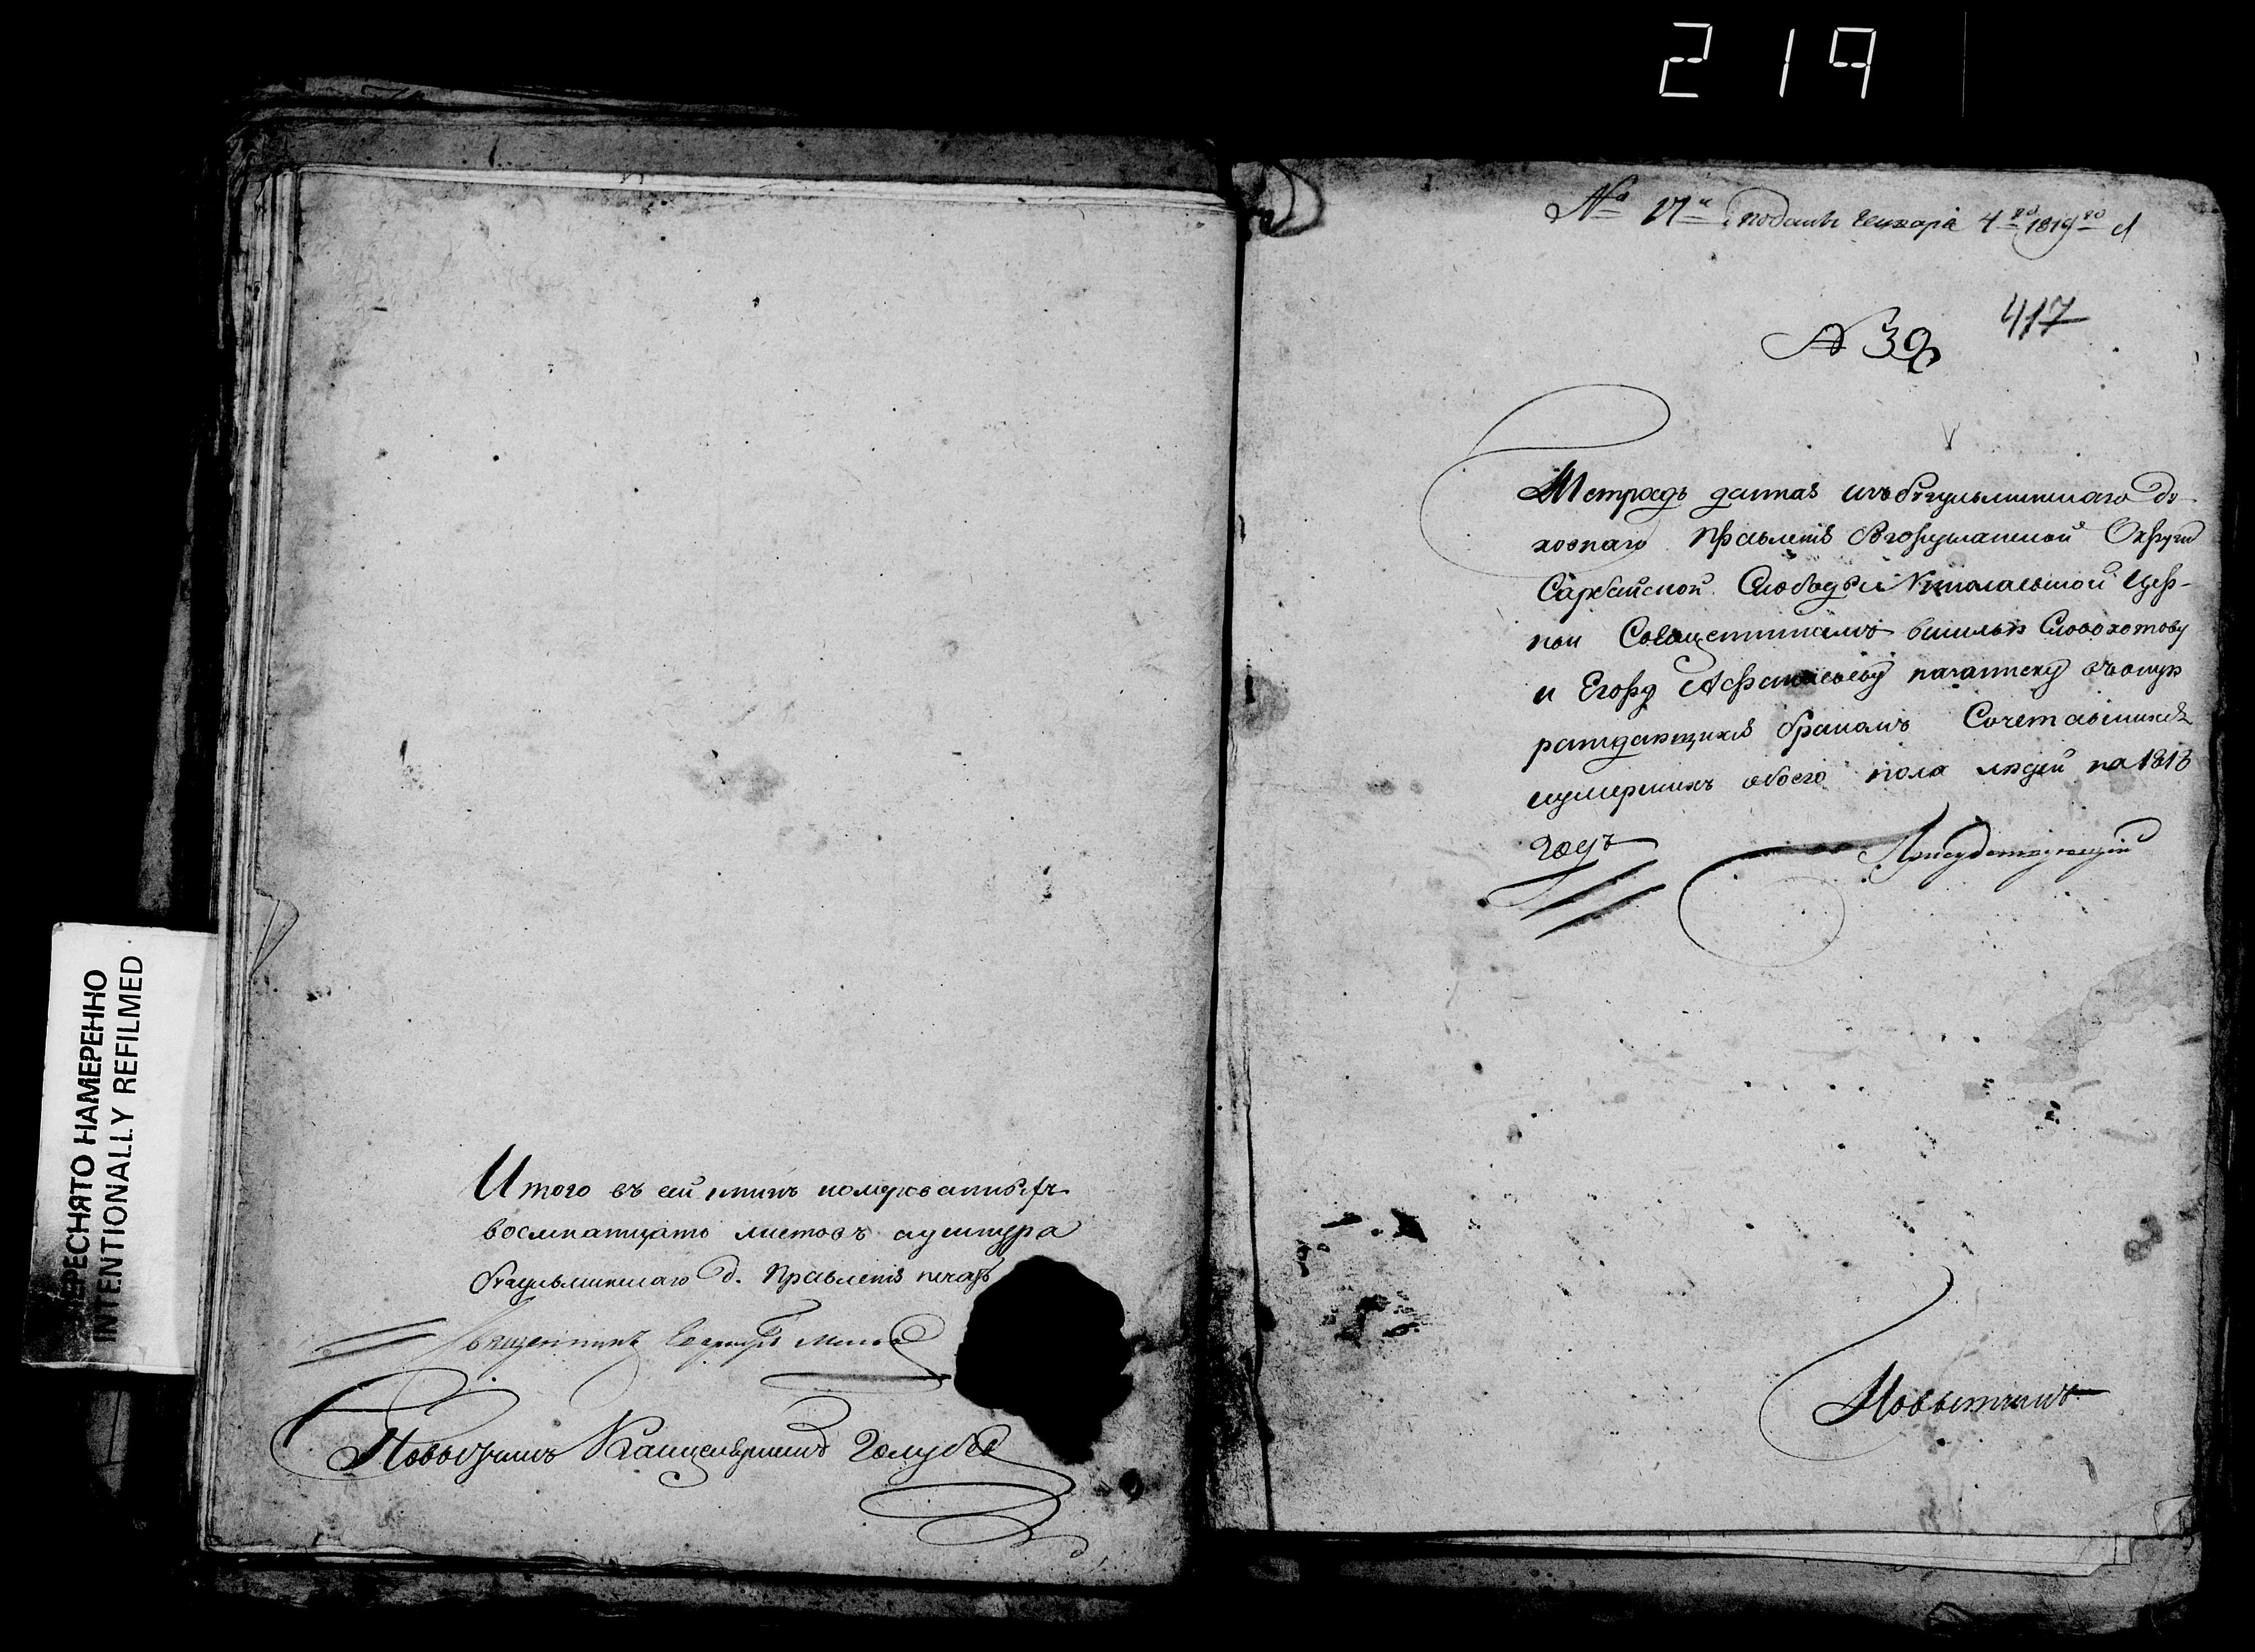 219
ПЕРЕСНЯТО НАМЕРЕННО
INTENTIONALLY REFILMED
Итого въ сей книгѣ номерованныхъ
восмнатцать листовъ
Бугульминскаго д. Правленія печать
Священникъ
Повытчикъ Канцеляристъ Голубев
№ 17й поданы Генваря 4го 1819го
417
№ 39
Тетрадь данная изъ Бугульминскаго Ду-
ховнаго Правленія Бугурусланской Округи
Сарбайской Слободы Николаевской Цер-
кви Священникамъ Василью Словохотову
и Егору Афанасьеву на записку въ оную
раждающихся бракомъ Сочетавшихся
и умершихъ обоего пола людей на 1818
годъ
Присудствующий
Повытчикъ